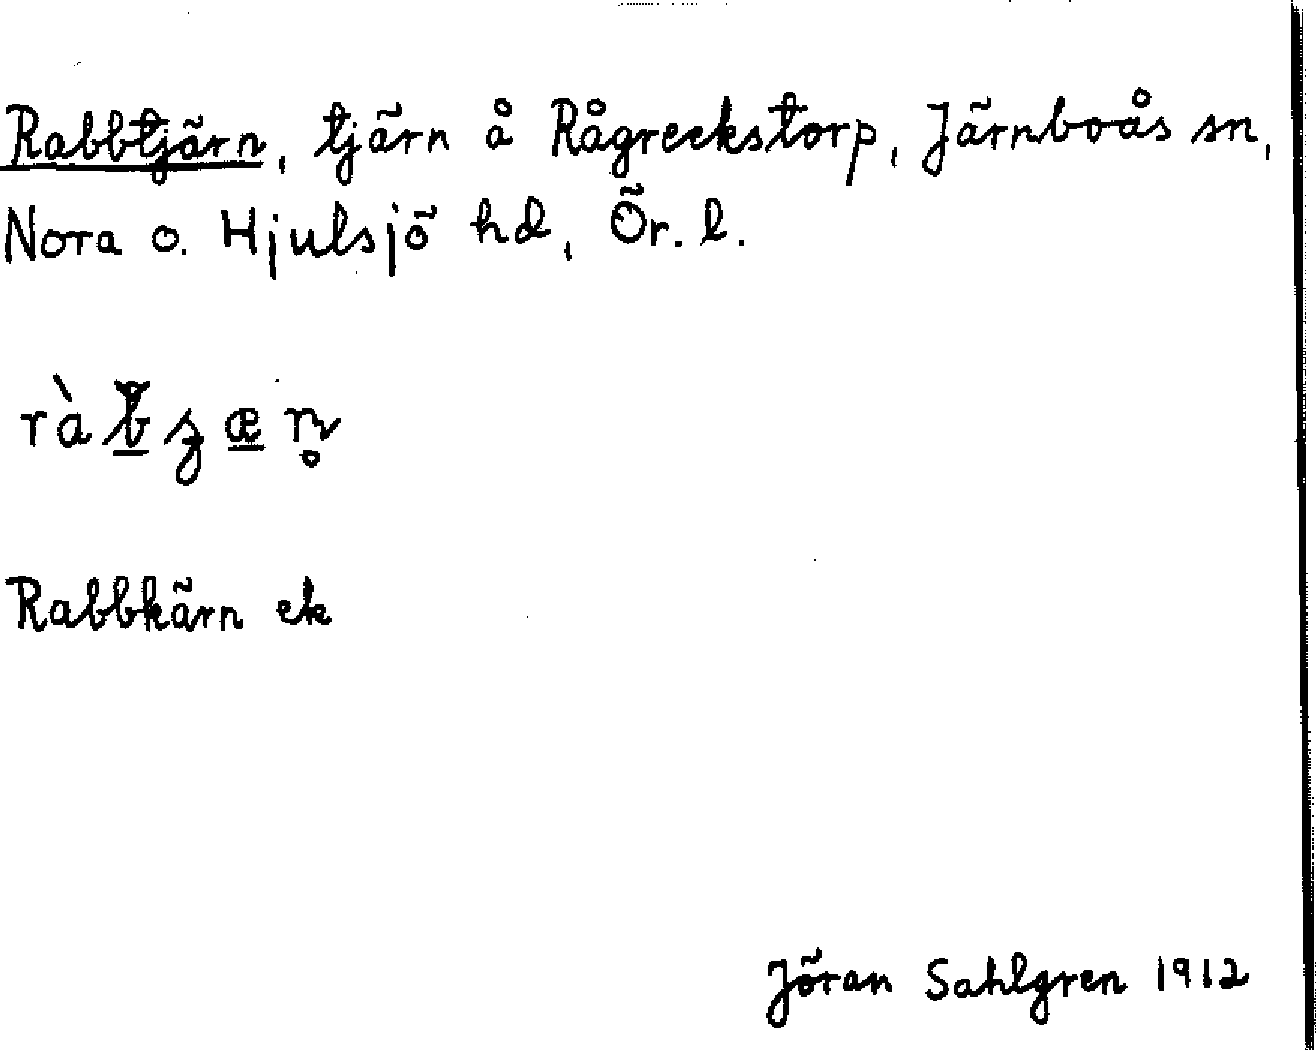 Rabbtjärn, tjärn å Rågreckstorp, Järnboås sn,
Nora o. Hjulsjö hd, Ör. l.
Rabbkärn ek
Jöran Sahlgren 1912